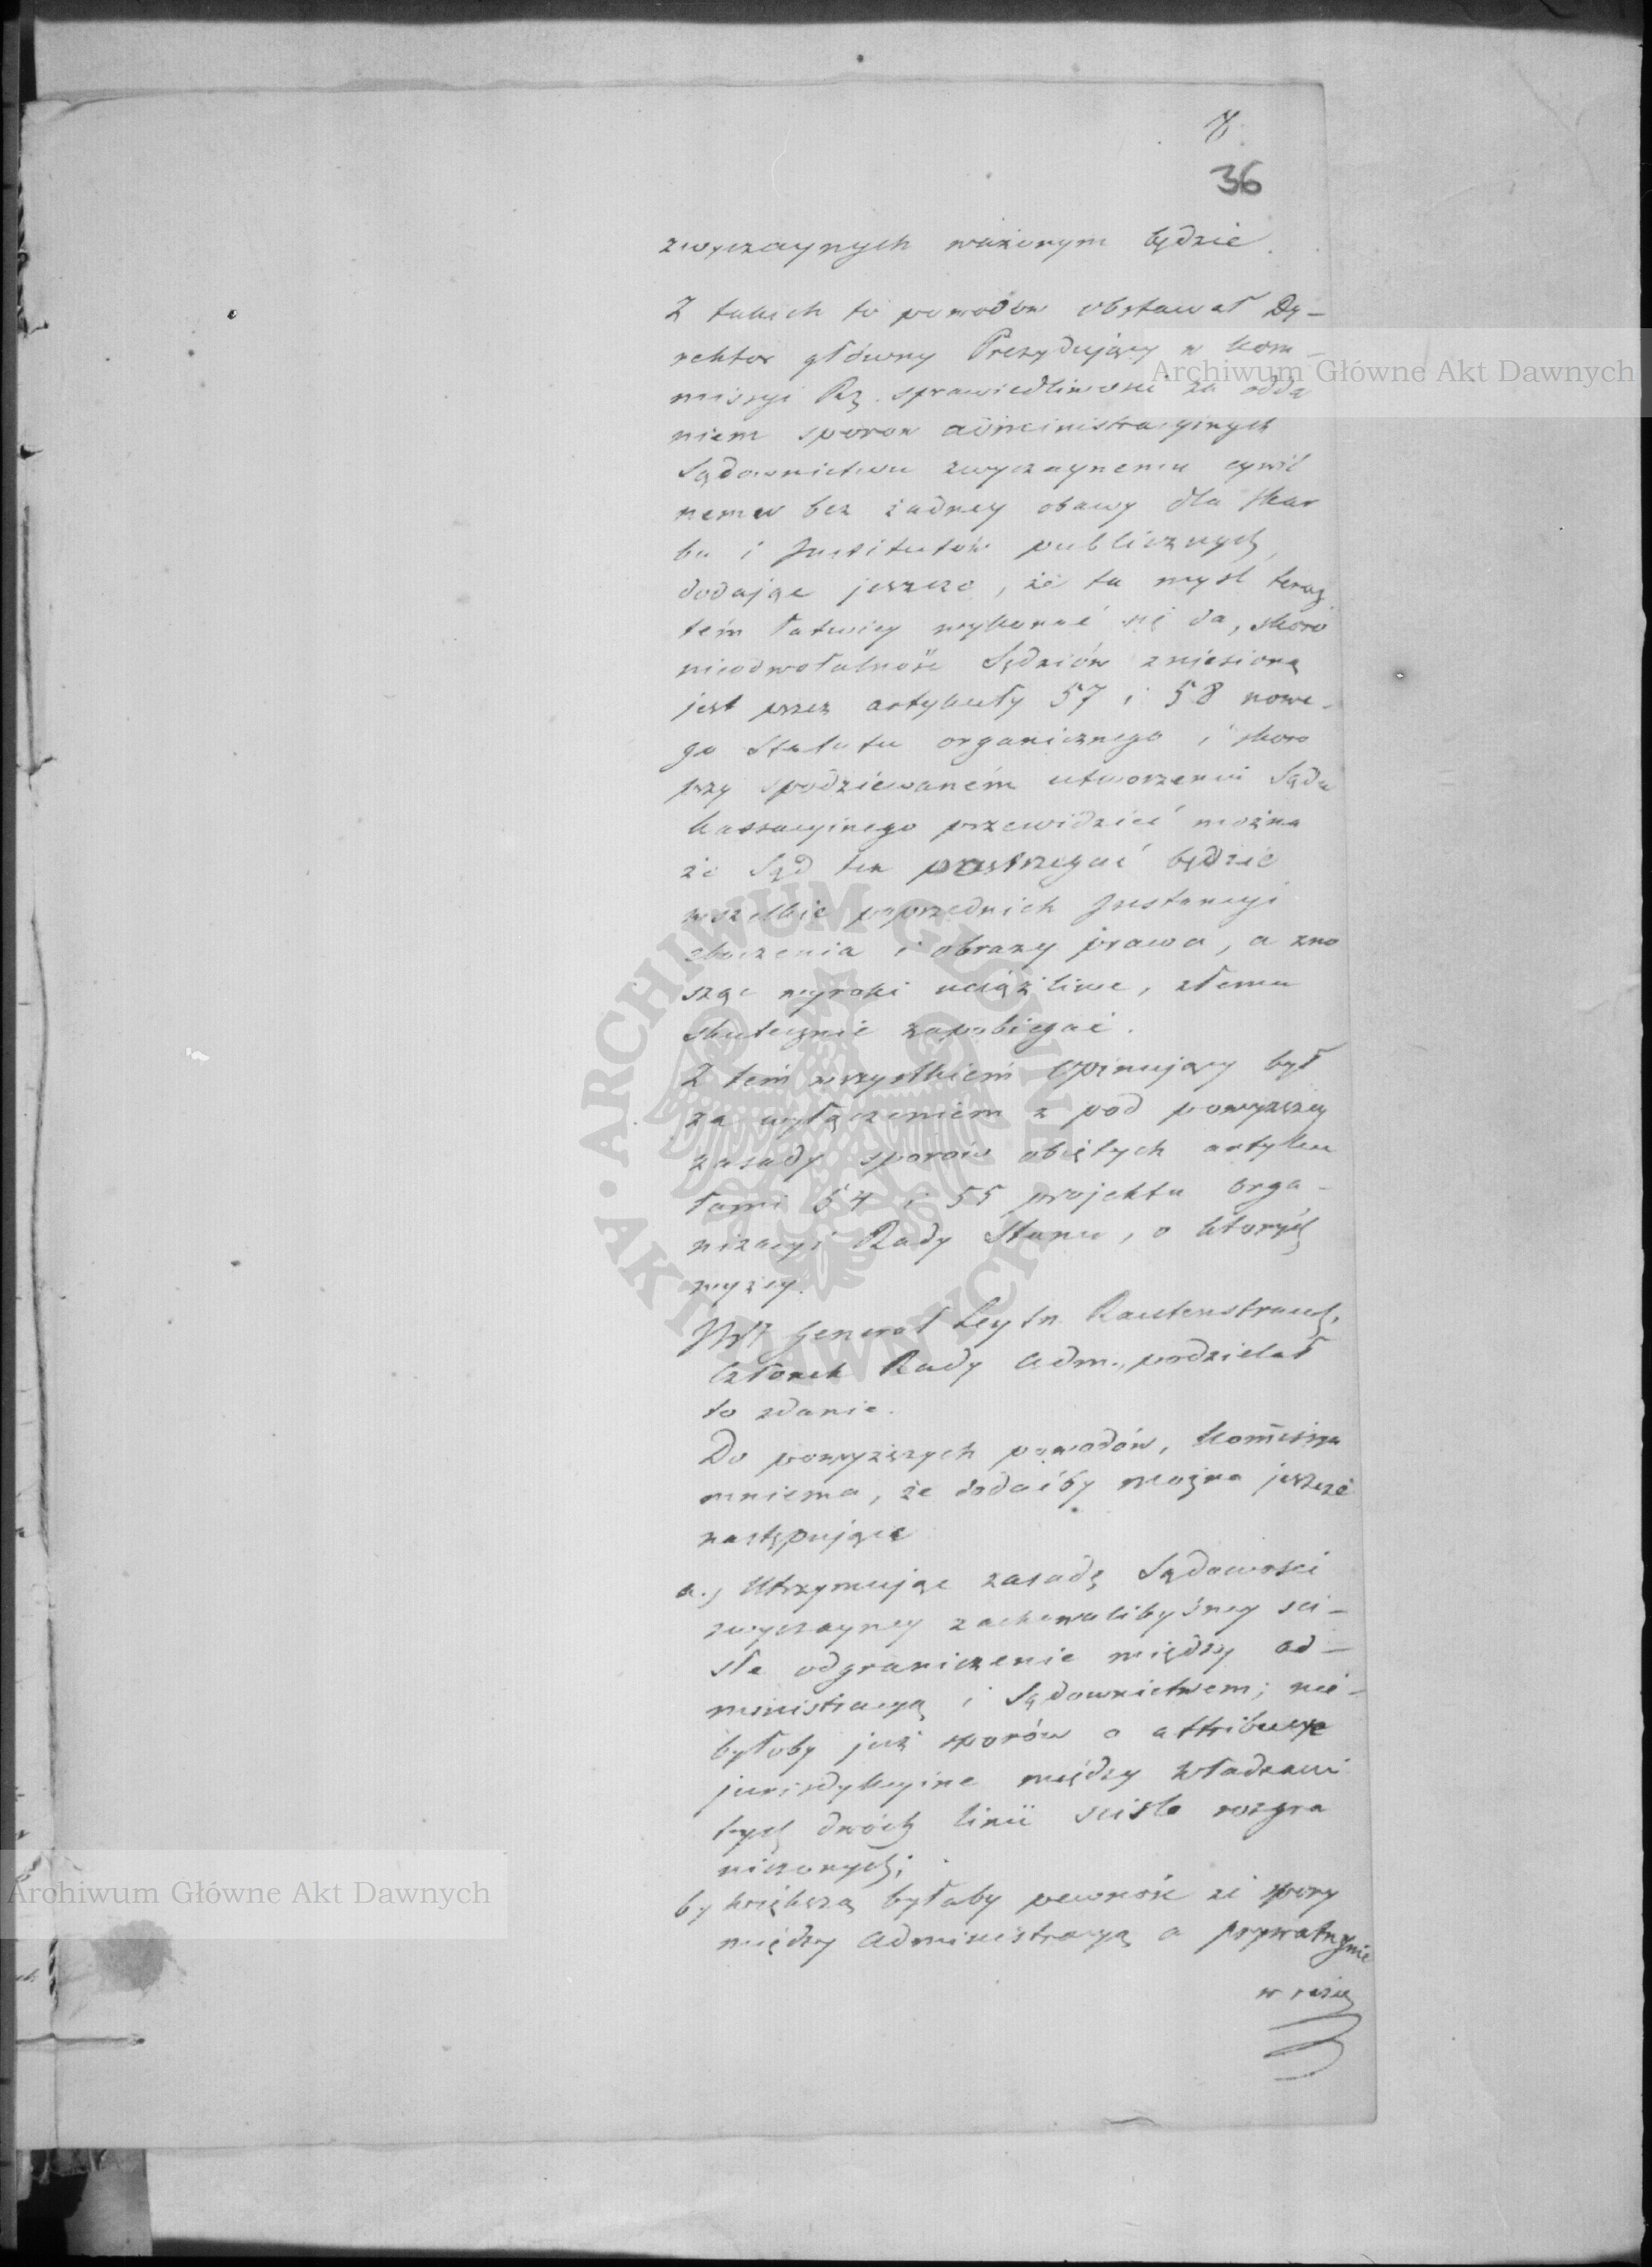 8.
36
zwyczaynych ważonym będzie.
Z takich to powodów obstawał Dy-
rektor główny Prezydujący w Kom-
missyi Rz. sprawiedliwości za odda
niem sporów administracyjnych
Sądownictwu zwyczaynemu cywil
nemu bez żadney obawy dla skar
bu i Institutów publicznych,
dodając jeszcze, że ta myśl teraz
tém łatwiey wykonać się da, skoro
nieodwołalność Sędziów zniesioną
jest przez artykuły 57 i 58 nowe-
go Statutu organicznego i skoro
przy spodziewaném utworzeniu Sądu
Kassacyjnego przewidzieć można
że Sąd ten postrzegać będzie
wszelkie poprzednich Instancyi
zboczenia i obrazy prawa, a zno
sząc wyroki uciążliwe, złemu
skutecznie zapobiegać.
Z tém wszystkiém Opinujący był
za wyłączeniem z pod powyższey
zasady sporów objętych artyku
łami 54 i 55 projektu orga-
nizacyi Rady Stanu, o których
wyżey.
JW Generał Leytn. Rautenstrauch,
Członek Rady Adm., podzielał
to zdanie.
Do powyższych powodów, Komissya
mniema, że dodaćby można jeszcze
następujące
a., Utrzymując zasadę Sądowości
zwyczayney zachowalibyśmy ści-
słe odgraniczenie między ad-
ministracyą i Sądownictwem; nie-
byłoby już sporów o attribucye
jurisdykcyine między władzami
tych dwóch linii ściśle rozgra
niczonych;
b, większą byłaby pewność że spory
między Administracyą a prywatnymi
w rzeczy
Archiwum Główne Akt Dawnych
Archiwum Główne Akt Dawnych
ARCHIWUM GŁÓWNE • AKT DAWNYCH •